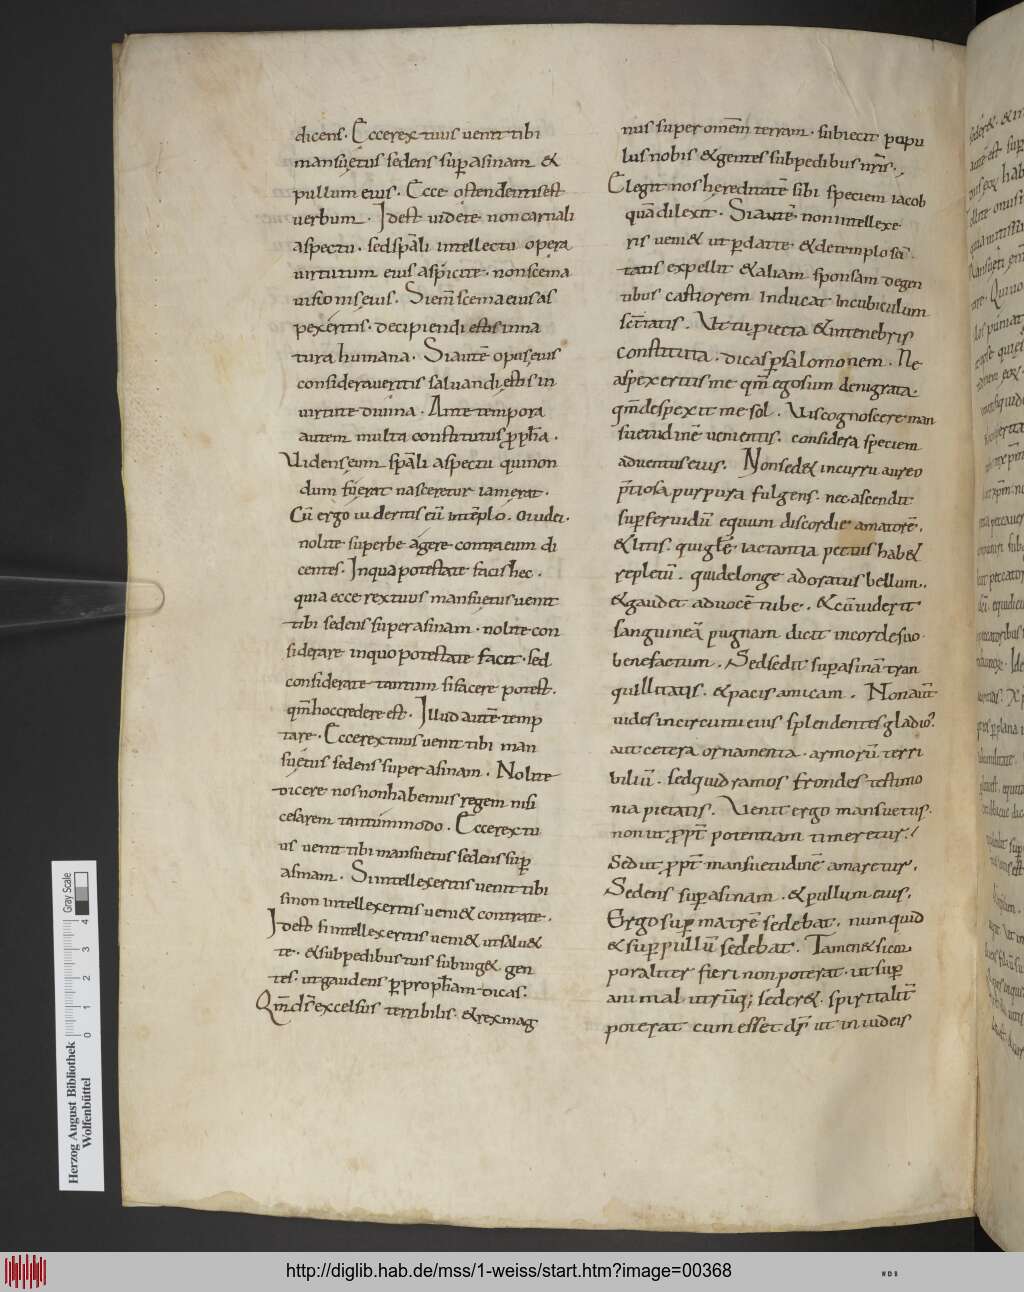 dicens. Ecce rex tuus uenit tibi
mansuetus sedens sup asinam &
pullum eius. Ecce ostendentis est
uerbum. Idest uidete non carnali
aspectu. sed spāli intellectu opera
uirtutum eius aspicite. non scema
uisionis eius. Si eni scema eius as
pexeritis. decipiendi estis in na
tura humana. Si autē opus eius
consideraueritis saluandi estis in
uirtute diuina. Ante tempora
autem multa constitutus pphā.
Uidens eum spāli aspectu qui non
dum fuerat nasceretur iam erat.
Cū ergo uideritis eū in tēplo. O iudei.
nolite superbe agere contra eum di
centes. In qua potestate facis hec.
quia ecce rex tuus mansuetus uenit
tibi sedens super asinam. nolite con
siderare in quo potestate facit. sed
considerate tantum si facere potest.
qm hoc credere est. Illud autē temp
tare. Ecce rex tuus uenit tibi man
suetus sedens super asinam. Nolite
dicere nos non habemus regem nisi
cesarem tantummodo. Ecce rex tu
us uenit tibi mansuetus sedens sup
asinam. Si intellexeritis uenit tibi
si non intellexeritis ueni& contra te.
Idest si intellexeritis ueni& ut salu&
te. & sub pedibus tuis subiug& gen
tes. ut gaudens p propham dicas.
Qm dns excelsus terribilis. & rex mag
nus super omem terram. subiecit popu
lus nobis & gentes sub pedibus nris.
Elegit nos hereditatē sibi speciem iacob
quā dilexit. Si autē non intellexe
ris ueni& ut pdat te. & de templo scī
tatis expellit & aliam sponsam de gen
tibus castiorem inducat in cubiculum
sctitatis. Ut tu picta & in tenebris
constituta. dicas p salomonem. Ne
aspexeritis me qm ego sum denigrata.
qm despexit me sol. Uis cognoscere man
suetudinē uenientis. considera speciem
aduentus eius. Non sed& in curru aureo
ptiosa purpura fulgens. nec ascendit
sup feruidū equum discordie amatorē.
& litis. qui glē iactantia pectus hab&
repletū. qui de longe adoratus bellum.
& gaudet ad uocē tube. & cū uiderit
sanguineā pugnam dicit in corde suo
benefactum. Sed sedit sup asinā tran
quillitatis. & pacis amicam. Non aut
uides in circuitu eius splendentes gladios
aut cetera ornamenta. armorū terri
biliū. sed quid ramos frondes testimo
nia pietatis. Uenit ergo mansuetus.
non ut ppt potentiam timeretur.
Sed ut ppt mansuetudinē amaretur.
Sedens sup asinam. & pullum eius.
Ergo sup matrē sedebat. numquid
& sup pullū sedebat. Tamen & si cor
poraliter fieri non poterat. ut sup
animal utrūq; seder&. spiritalit
poterat cum esset ds ut in iudeis
Herzog August Bibliothek
Wolfenbüttel
Gray Scale
0 1 2 3 4
http://diglib.hab.de/mss/1-weiss/start.htm?image=00368